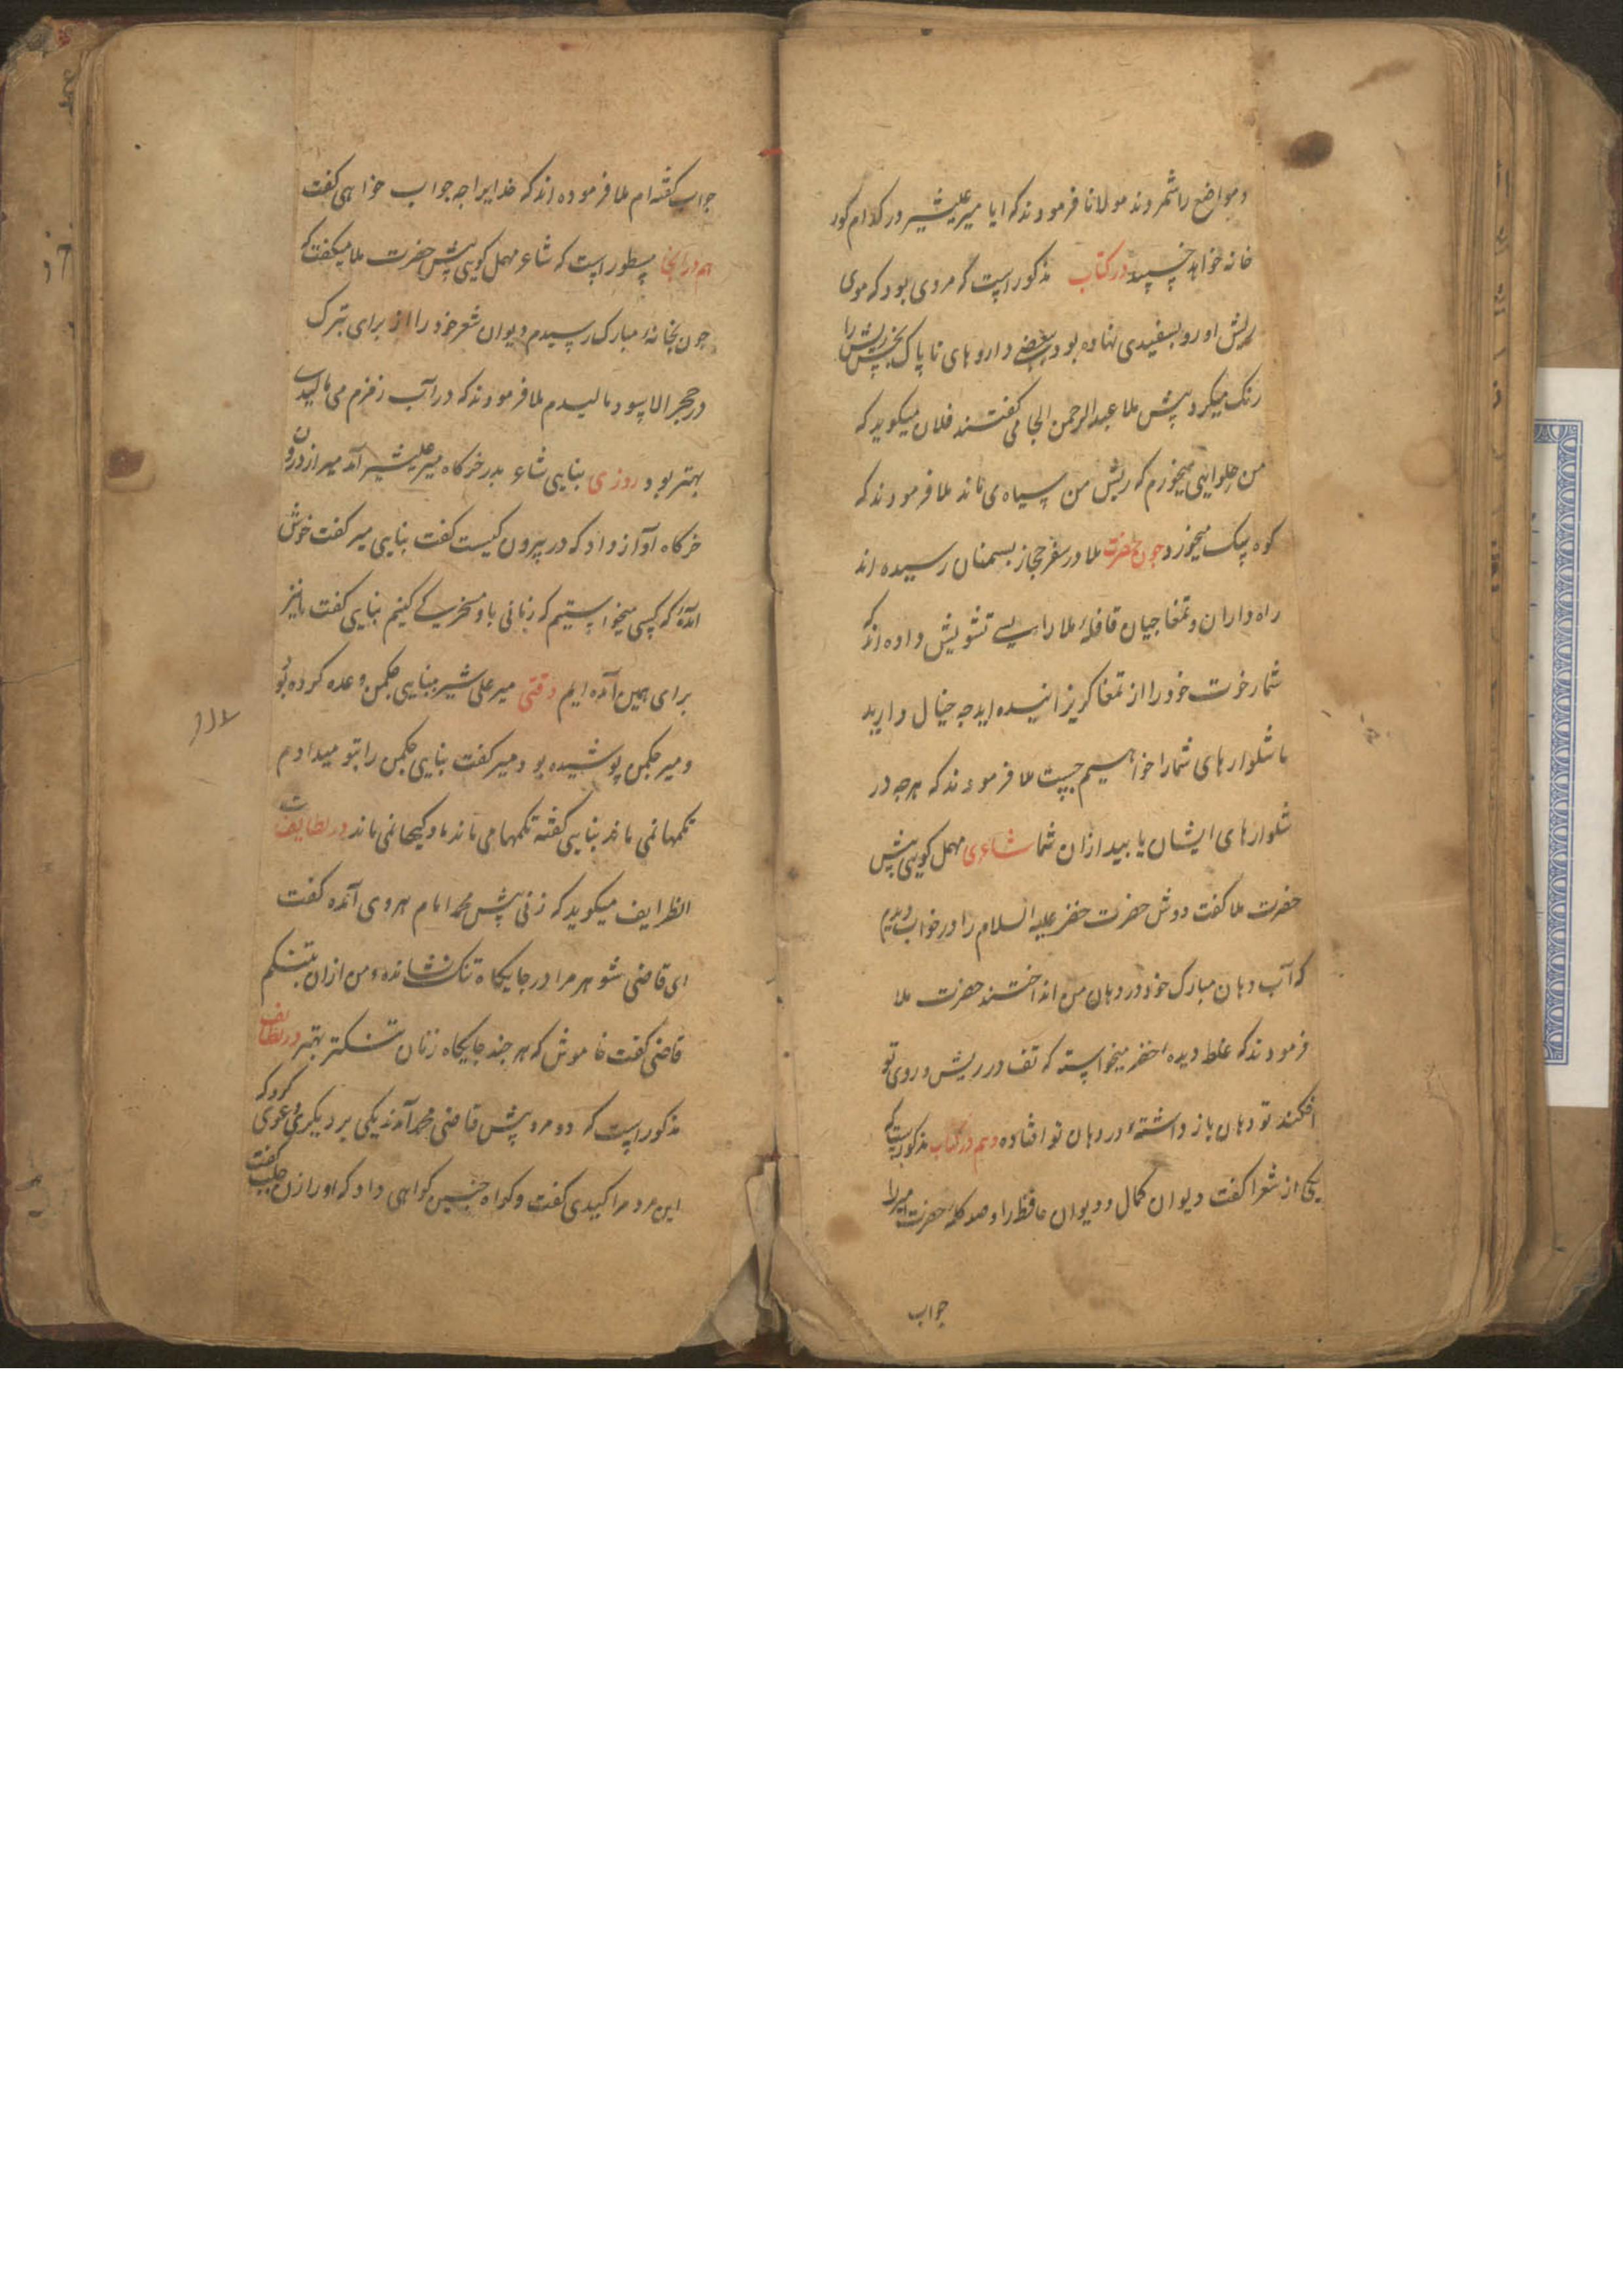 و مواضع را شمردند مولانا فرمودند که ایا میر علیشیر در کدام کور
خانه خواهد خسپید در کتاب مذکور است که مردی بود که موی
ریش او رو بسفیدی نهاده بود ببعضی داروهای ناپاک نجس ریش را
رنک میکرد پیش ملا عبدالرحمن الجامی گفتند فلان میکوید که
من حلوایی میخورم که ریش من سیاه می ماند ملا فرمودند که
کوه سک میخورد چون حضرت ملا در سفر حجاز بسمنان رسیده اند
راه داران و تمغاجیان قافلهٔ ملا را بسی تشویش داده اند که
شما رخوت خود را از تمغا کریزانیده اید چه خیال دارید
ما شلوارهای شما را خواهیم جست ملا فرمودند که هرچه در
شلوارهای ایشان یابید ازان شما شاعری مهمل کویی پیش
حضرت ملا گفت دوش حضرت خضر علیه السلام را در خواب دیدم
که آب دهان مبارک خود در دهان من انداختند حضرت ملا
فرمودند که غلط دیدهٔ خضر میخواسته که تف در ریش و روی تو
افکند تو دهان باز داشتهٔ در دهان تو افتاده و هم در کتاب مذکور است که
یکی از شعرا گفت دیوان کمال و دیوان حافظ را و صد کلمهٔ حضرت میر را
جواب
جواب گفته ام ملا فرموده اند که خدایرا چه جواب خواهی گفت
هم در انجا مسطور است که شاعر مهمل کویی پیش حضرت ملا میکفت که
چون بخانهٔ مبارک رسیدم دیوان شعر خود را از برای تبرک
در حجر الاسود مالیدم ملا فرمودند که در آب زمزم می مالیدی
بهتر بود روزی بنایی شاعر بدر خرکاه میر علیشیر آمد میر از درون
خرکاه آواز داد که در بیرون کیست گفت بنایی میر گفت خوش
آمدهٔ که کسی میخواستیم که زمانی با او مسخرکی کنیم بنایی گفت ما نیز
برای همین آمده ایم وقتی میر علی شیر ببنایی چکمن وعده کرده بود
و میر چکمن پوشیده بود میر گفت بنایی چکمن را بتو میدادم
تکمها نمی ماند بنایی گفته تکمها می ماند مادکیها نمی ماند در لطایف
الظرایف میکوید که زنی پیش محمد امام هروی آمده گفت
ای قاضی شوهر مرا در جایکاه تنک نشانده و من ازان بتنکم
قاضی گفت خاموش که هر چند جایکاه زنان تنکتر بهتر در لطایف
مذکور است که دو مرد پیش قاضی محمد آمدند یکی بر دیکری دعوی کرد که
این مرد مرا کیدی گفت و کواه چنین کواهی داد که او را زن جلب گفت